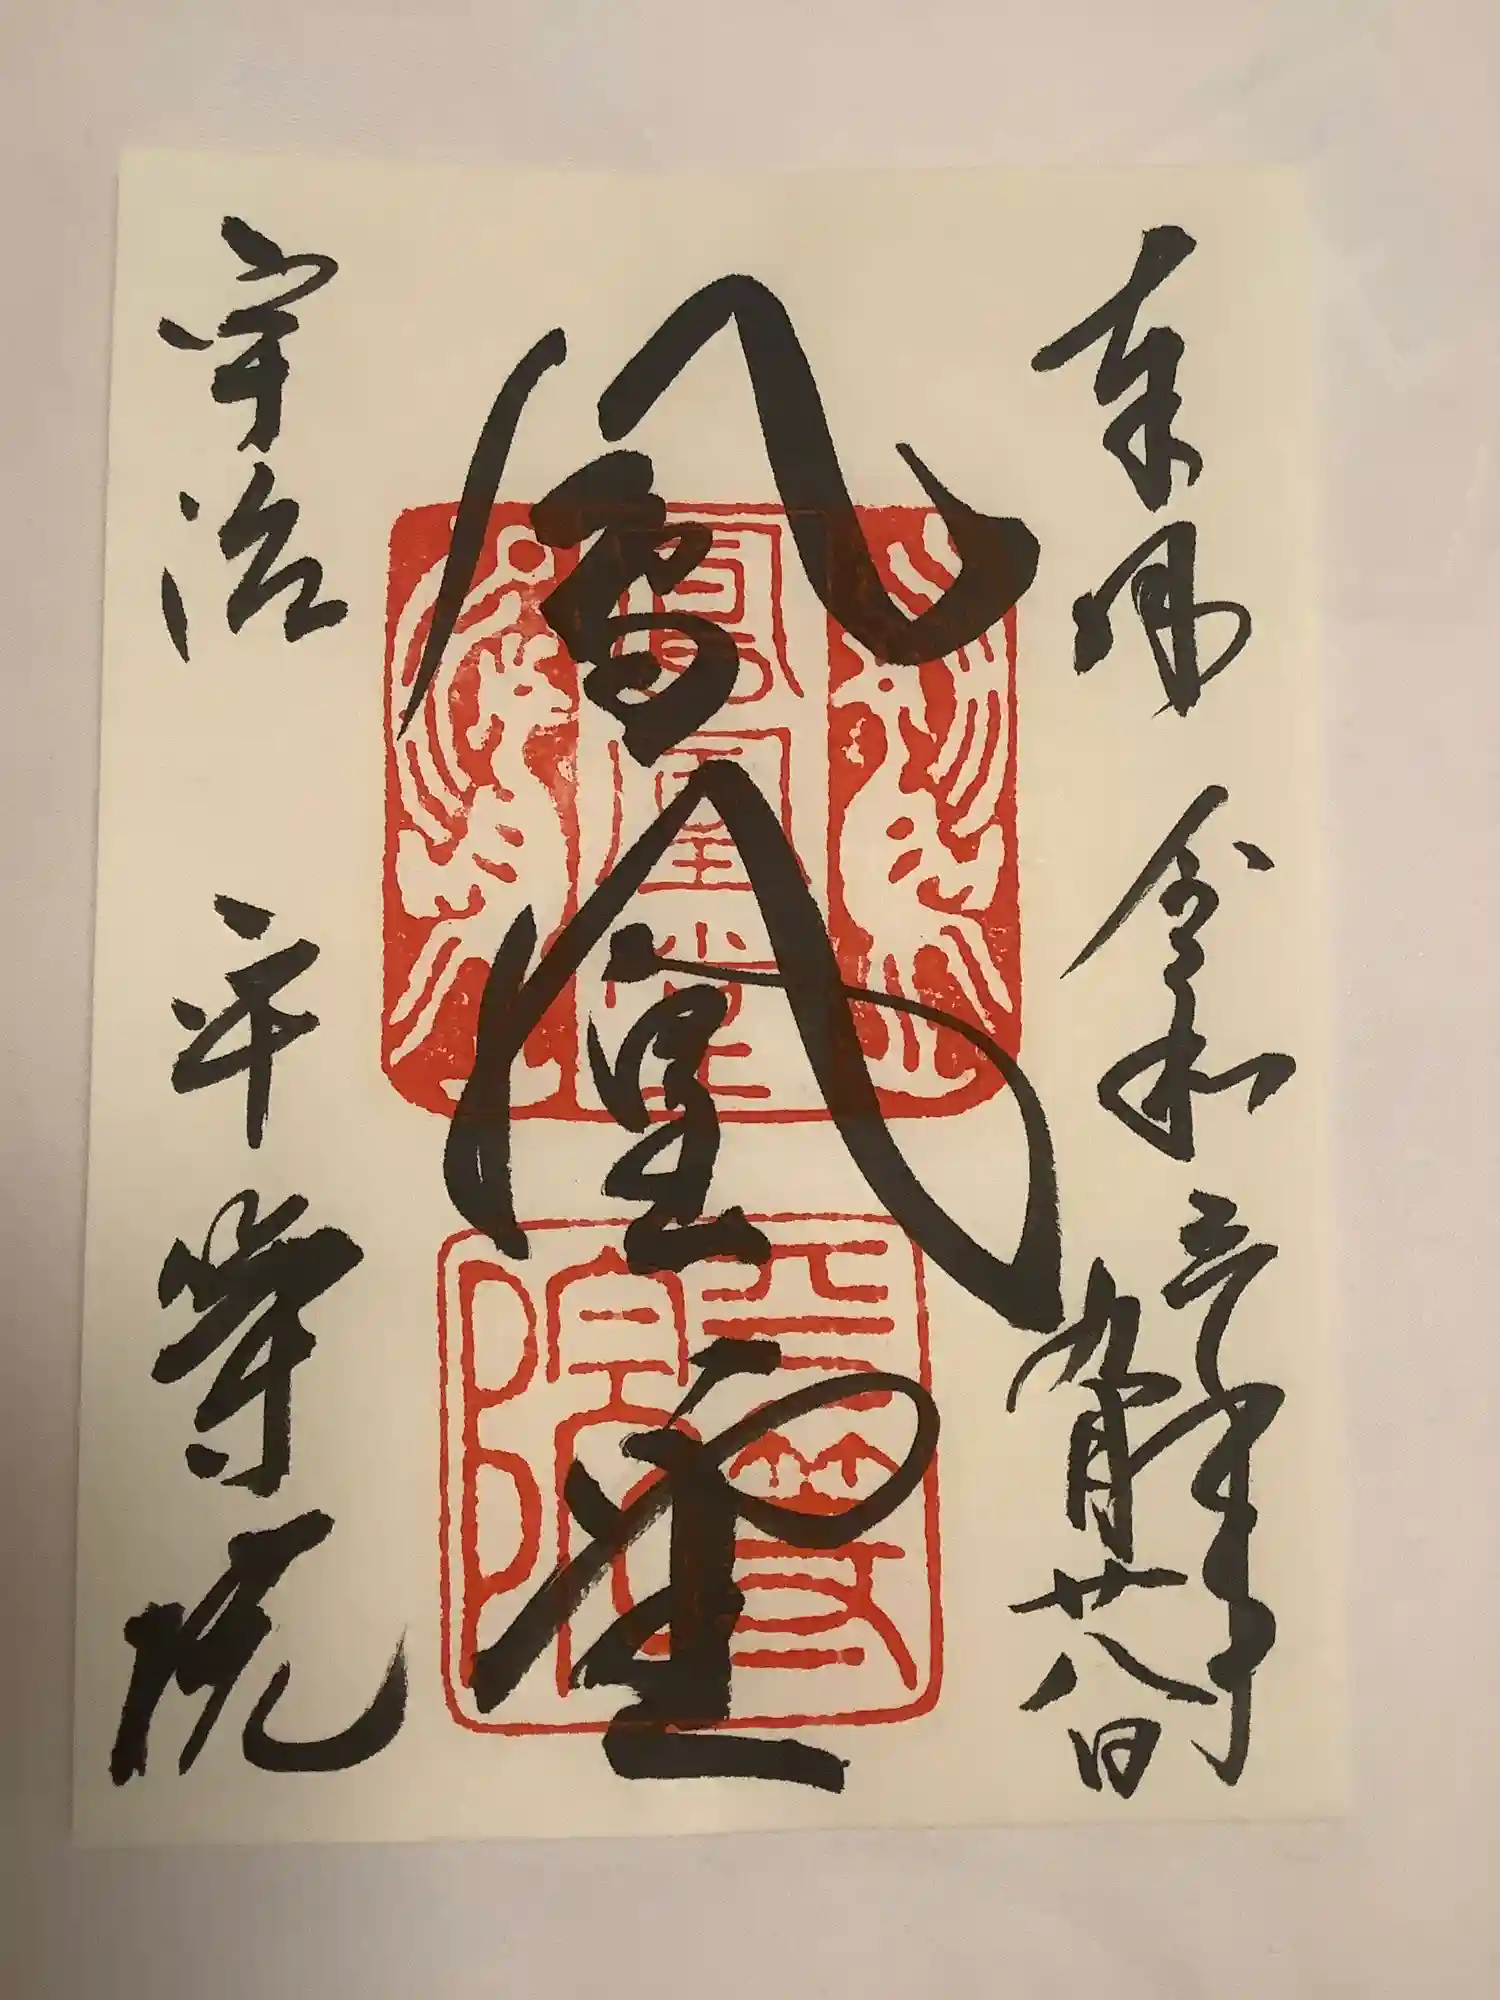 奉拝 令和五年
九月廿八日
鳳凰堂
宇治 平等院
鳳凰堂
平等院